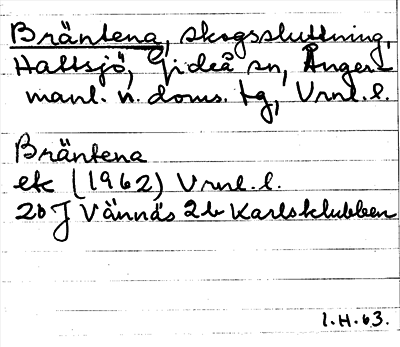 Bräntena, skogssluttning,
Hattsjö, Gideå sn, Ånger-
manl. n. doms. tg, Vrnl. l.
Bräntena
ek (1962) Vrnl. l.
20J Vännäs 2b Karlsklubben
I.H.63.